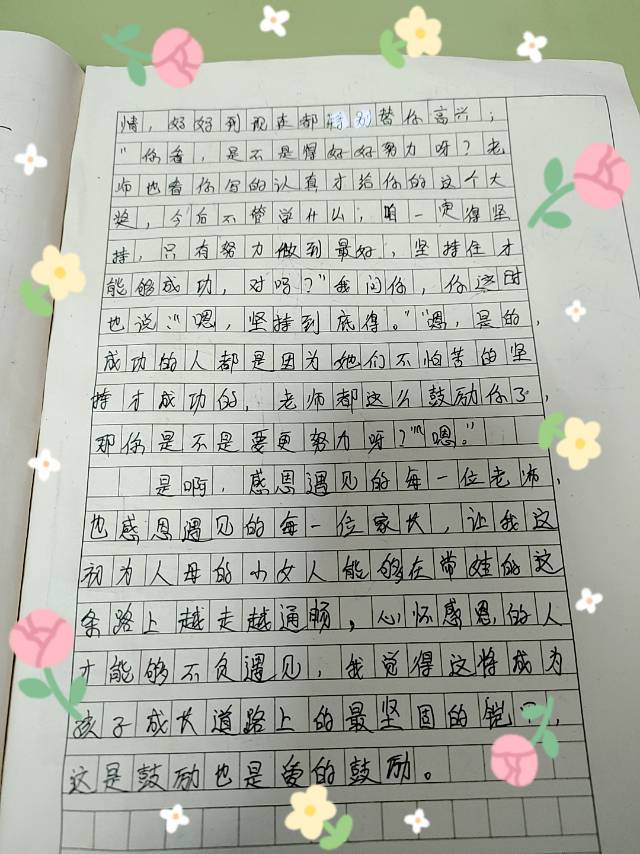 情，好好到现在都特别替你高兴；
"你看，是不是得好好努力呀？老
师也看你写的认真才给你的这个大
奖，今后不管学什么，咱一定得坚
持，只有努力做到最好，坚持住才
能够成功，对吗？"我问你，你这时
也说："嗯，坚持到底得。""嗯，是的，
成功的人都是因为他们不怕苦的坚
持才成功的，老师都这么鼓励你了，
那你是不是要更努力呀？""嗯。"
是啊，感恩遇见的每一位老师，
也感恩遇见的每一位家长，让我这
初为人母的小女人能够在带娃的这
条路上越走越通顺，心怀感恩的人
才能够不负遇见，我觉得这将成为
孩子成长道路上的最坚固的铠，
这是鼓励也是爱的鼓励。